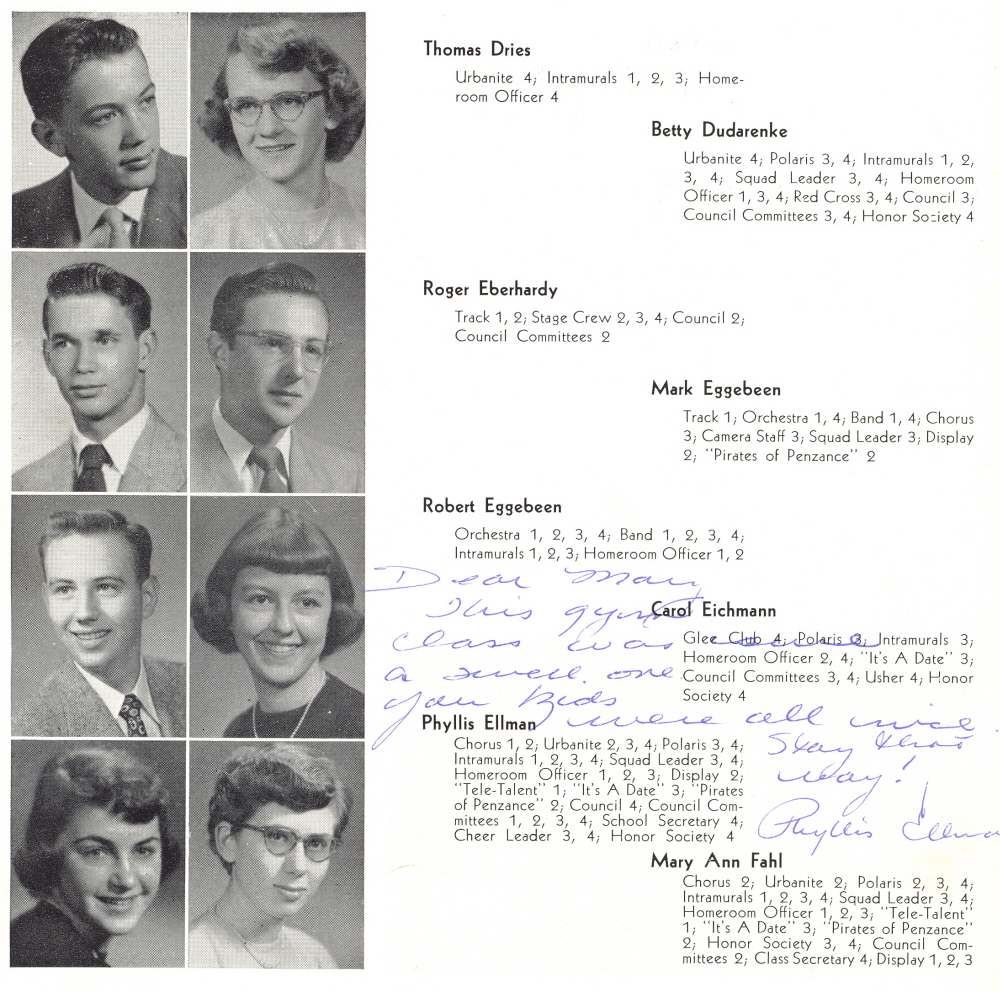 Thomas Dries
Urbanite 4; Intramurals 1, 2, 3; Home-
room Officer 4
Betty Dudarenke
Urbanite 4; Polaris 3, 4; Intramurals 1, 2,
3, 4; Squad Leader 3, 4; Homeroom
Officer 1, 3, 4; Red Cross 3, 4; Council 3;
Council Committees 3, 4; Honor Society 4
Roger Eberhardy
Track 1, 2; Stage Crew 2, 3, 4; Council 2;
Council Committees 2
Mark Eggebeen
Track 1; Orchestra 1, 4; Band 1, 4; Chorus
3; Camera Staff 3; Squad Leader 3; Display
2; "Pirates of Penzance" 2
Robert Eggebeen
Orchestra 1, 2, 3, 4; Band 1, 2, 3, 4;
Intramurals 1, 2, 3; Homeroom Officer 1, 2
Carol Eichmann
Glee Club 4; Polaris 3; Intramurals 3;
Homeroom Officer 2, 4; "It's A Date" 3;
Council Committees 3, 4; Usher 4; Honor
Society 4
Phyllis Ellman
Chorus 1, 2; Urbanite 2, 3, 4; Polaris 3, 4;
Intramurals 1, 2, 3, 4; Squad Leader 3, 4;
Homeroom Officer 1, 2, 3; Display 2;
"Tele-Talent" 1; "It's A Date" 3; "Pirates
of Penzance" 2; Council 4; Council Com-
mittees 1, 2, 3, 4; School Secretary 4;
Cheer Leader 3, 4; Honor Society 4
Mary Ann Fahl
Chorus 2; Urbanite 2; Polaris 2, 3, 4;
Intramurals 1, 2, 3, 4; Squad Leader 3, 4;
Homeroom Officer 1, 2, 3; "Tele-Talent"
1; "It's A Date" 3; "Pirates of Penzance"
2; Honor Society 3, 4; Council Com-
mittees 2; Class Secretary 4; Display 1, 2, 3
Dear Mary,
This gym
class was
a swell one
you kids
were all nice.
Stay that
way!
Phyllis Ellman